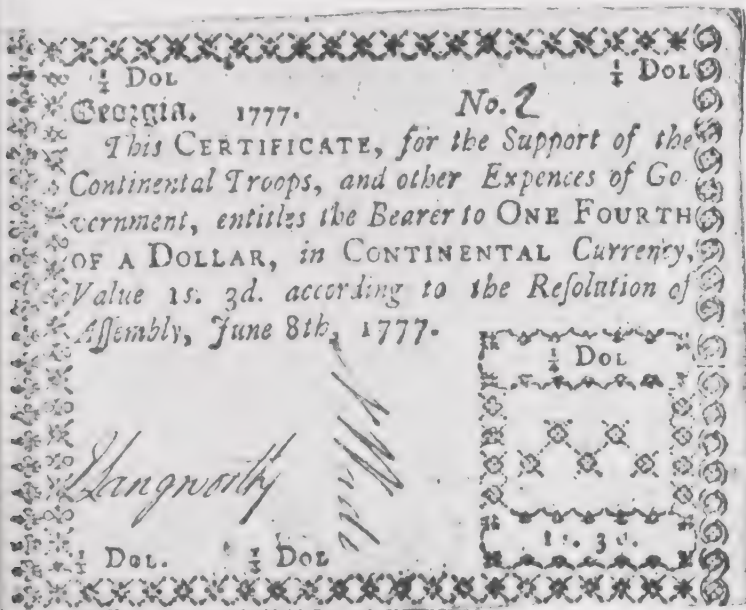 ¼ DOL ¼ DOL
Georgia. 1777. No. 2
This CERTIFICATE, for the Support of the
Continental Troops, and other Expences of Go-
vernment, entitles the Bearer to ONE FOURTH
OF A DOLLAR, in CONTINENTAL Currency,
Value 1s. 3d. according to the Reſolution of
Aſſembly, June 8th, 1777.
¼ DOL
Langworthy
1s. 3d.
¼ DOL. ¼ DOL